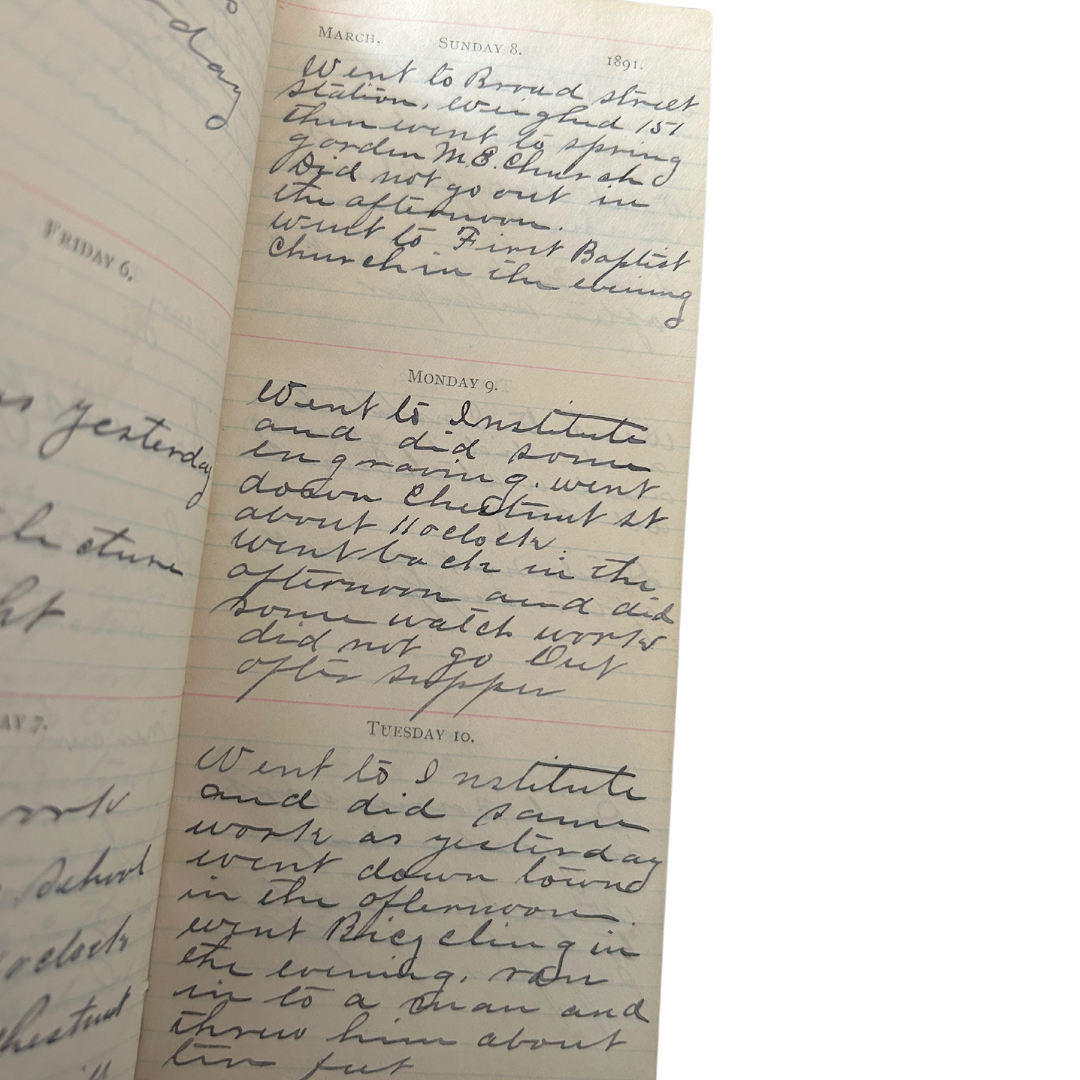 day
FRIDAY 6.
as yesterday
lecture
AY 7.
work
school
oclock
chestnut
MARCH. SUNDAY 8. 1891.
Went to Broad street
station, weighed 151
then went to spring
garden M.E. Church
Did not go out in
the afternoon.
went to First Baptist
church in the evening
MONDAY 9.
Went to Institute
and did some
engraving. went
down Chestnut st
about 11 oclock.
went back in the
afternoon and did
some watch work
did not go Out
after supper
TUESDAY 10.
Went to Institute
and did same
work as yesterday
went down town
in the afternoon.
went Bicycling in
the evening. ran
in to a man and
threw him about
ten feet